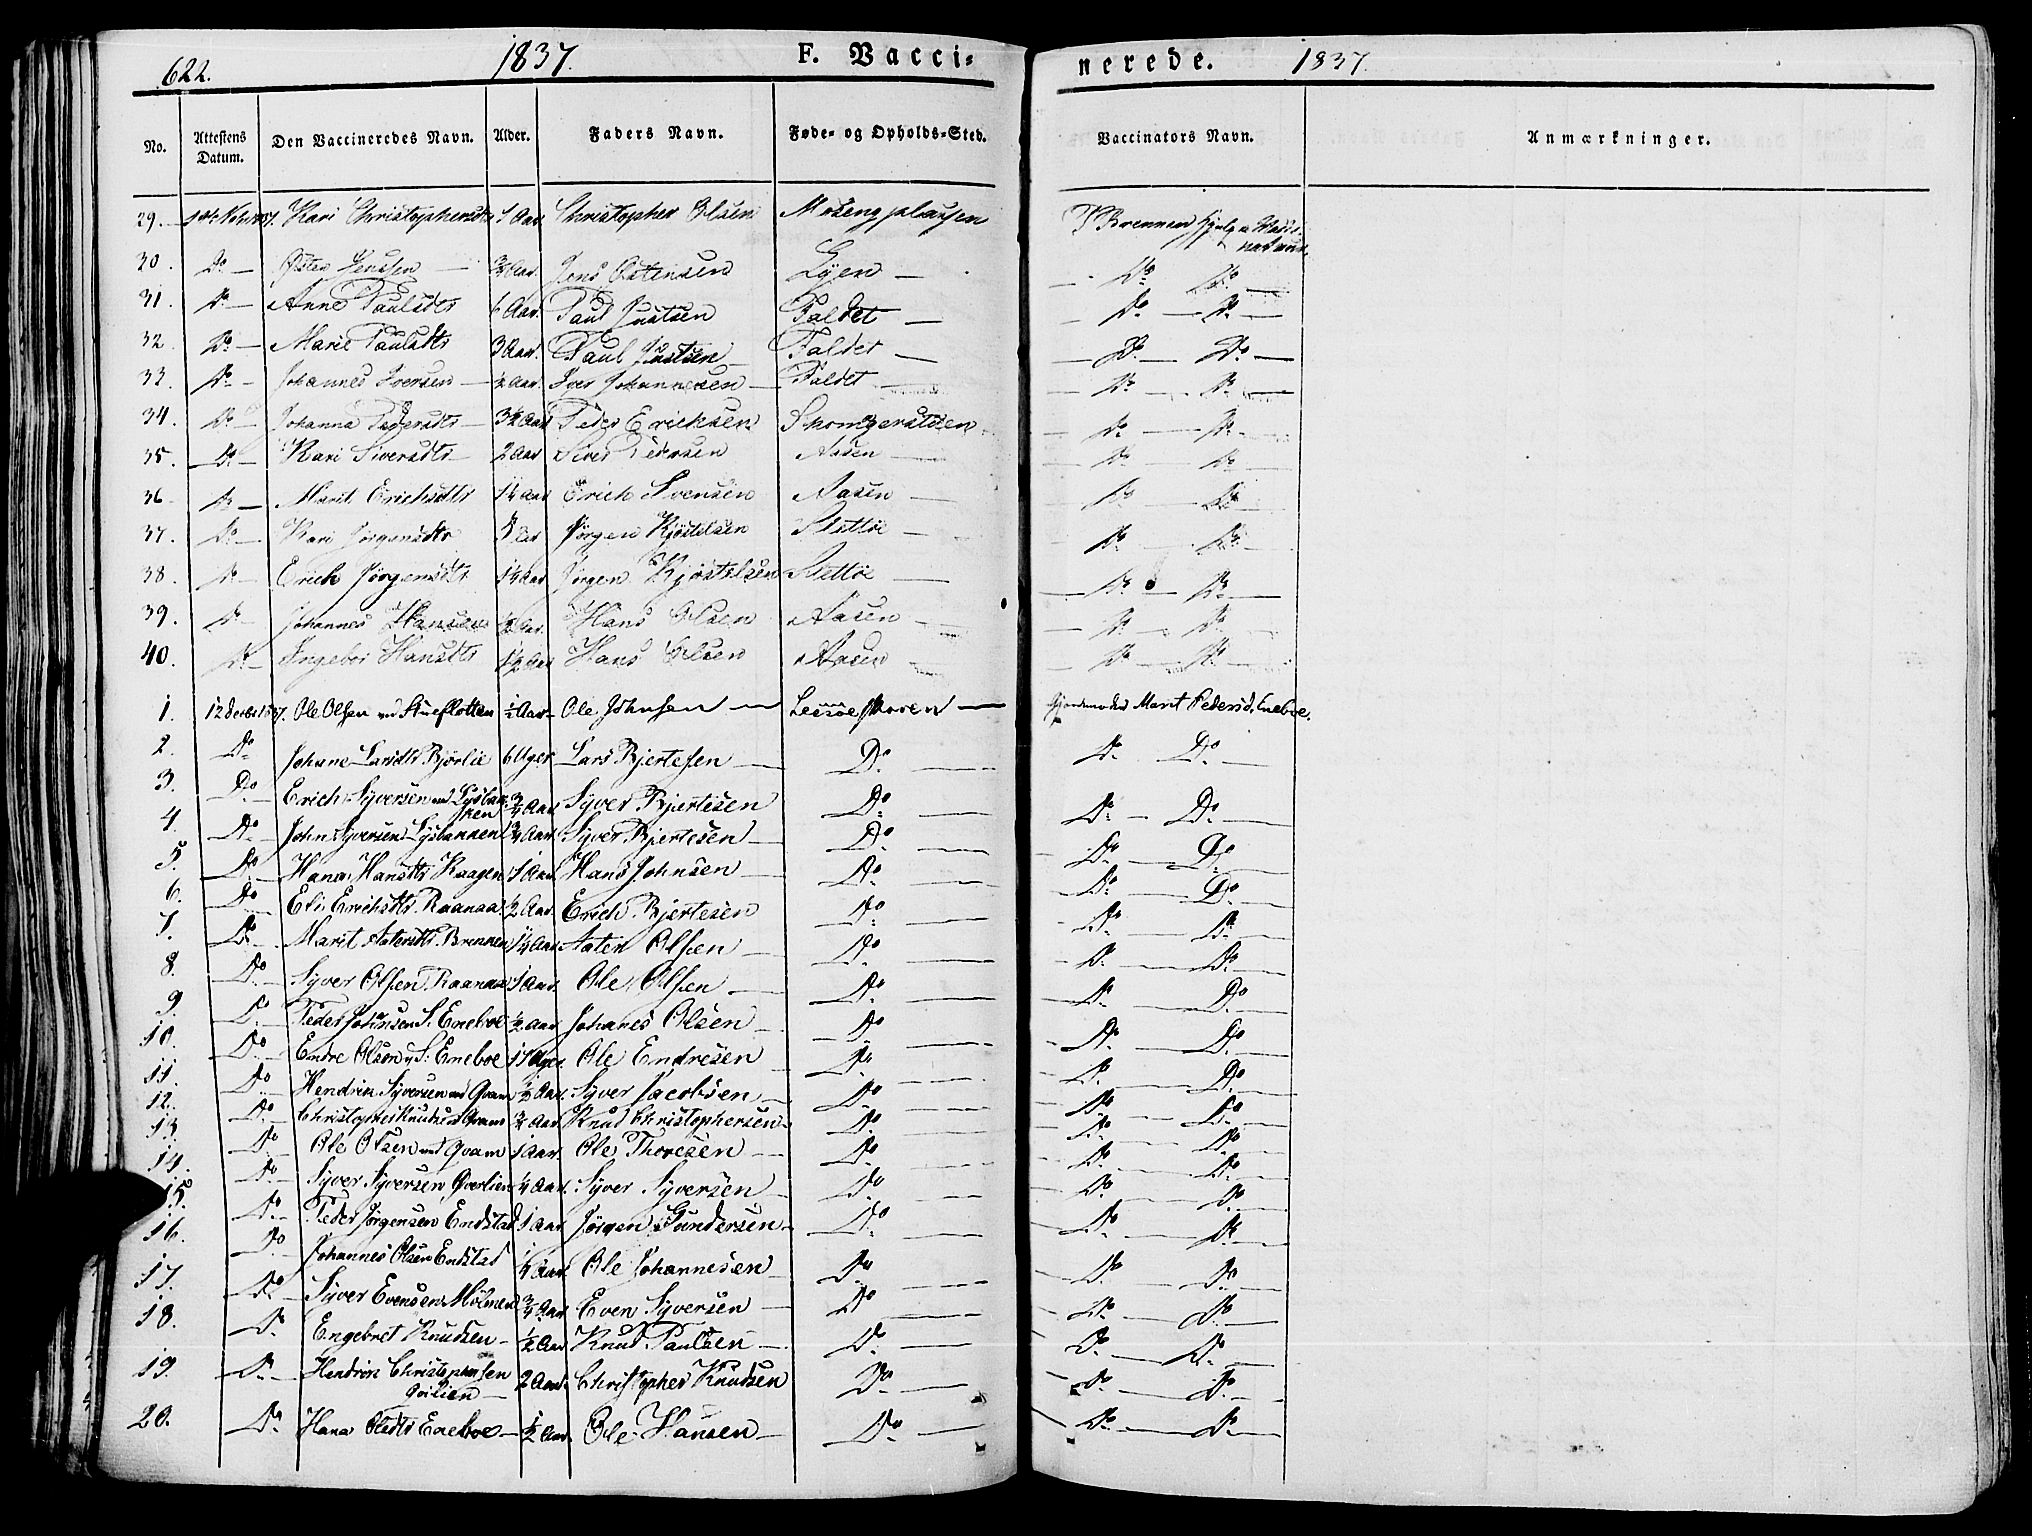 622. 1837. F. Vacci-
nerede. 1837.
No. Attestens Datum. Den Vaccineredes Navn. Alder. Faders Navn. Føde- og Opholds-Sted. Vaccinators Navn. Anmærkninger.
29. Kari Christophersdtr 1 Aar Christopher Olsen
30. Do Østen Jenssen ¾ Aar. Jens Østensen Lyen Do Do
31. Do Anne Paulsdtr 6 Aar. Paul Justsen Faldet Do Do
32. Do Marie Paulsdtr 3 Aar. Paul Justsen Faldet Do Do
33. Do Johannes Iversen ½ Aar. Iver Johannesen Faldet Do Do
34. Do Johanna Pedersdtr 3½ Aar Peder Ericksen Do Do
35. Do Kari Siversdtr 2 Aar Siver Pedersen Aasen Do Do
36 Do Marit Erichsdtr 1¼ Aar Erich Svensen Aasen Do Do
37. Do Kari Jørgensdtr Aar Jørgen Kjøstelsen Slettøe Do Do
38. Do Erich Jørgensdtr 1¼ Aar Jørgen Kjøstelsen Slettøe Do Do
39. Do Johannes Hansen ½ Aar. Hans Olsen Aasen Do Do
40. Do Ingebor Hansdtr 1½ Aar Hans Olsen Aasen Do Do
1. Ole Olsen Stueflotten ½ Aar Ole Johnsen Lessøe Marit Pedersd. Eneboe.
2. Do Johane Larsdtr Bjørlie 6 Uger Lars Bjertesen Do Do Do
3. Do Erich Syversen ¾ Aar Syver Bjertesen Do Do Do
4. Do John Syversen Lysbakken ¾ Aar. Syver Bjertesen Do Do Do
5. Do Hana Hansdtr Kaagen 1 Aar. Hans Johnsen Do Do Do
6. Do Eli Erichsdtr Raanaa ½ Aar. Erich Bjertesen Do Do Do
7. Do Marit Brennen 1¼ Aar Olsen Do Do Do
8. Do Syver Olsen Raanaa 1 Aar. Ole Olsen Do Do Do
9. Do Peder Johnsen S. Eneboe ½ Aar Johanes Olsen Do Do Do
10. Do Endre Olsen S: Eneboe 17 Uger Ole Endresen Do Do Do
11. Do Hendrik Syversen Qvam ½ Aar. Syver Jacobsen Do Do Do
12. Do Christopher Knudsen Qvam ¾ Aar Knud Christophersen Do Do Do
13. Do Ole Olsen Qvam 1 Aar. Ole Thoresen Do Do Do
14. Do Syver Syversen Qverlien ¼ Aar. Syver Syversen Do Do Do
15. Do Peder Jørgensen Endstad 1 Aar Jørgen Gundersen Do Do Do
16. Do Johannes Olsen Endstad ¼ Aar. Ole Johannesen Do Do Do
17. Do Syver Evensen Mølmen ¾ Aar Even Syversen Do Do Do
18. Do Engebret Knudsen ½ Aar Knud Paulsen Do Do Do
19. Do Hendrik Christophersen 2 Aar. Christopher Knudsen Do Do Do
20. Do Hana Olsdtr Eneboe ½ Aar. Ole Hansen Do Do Do